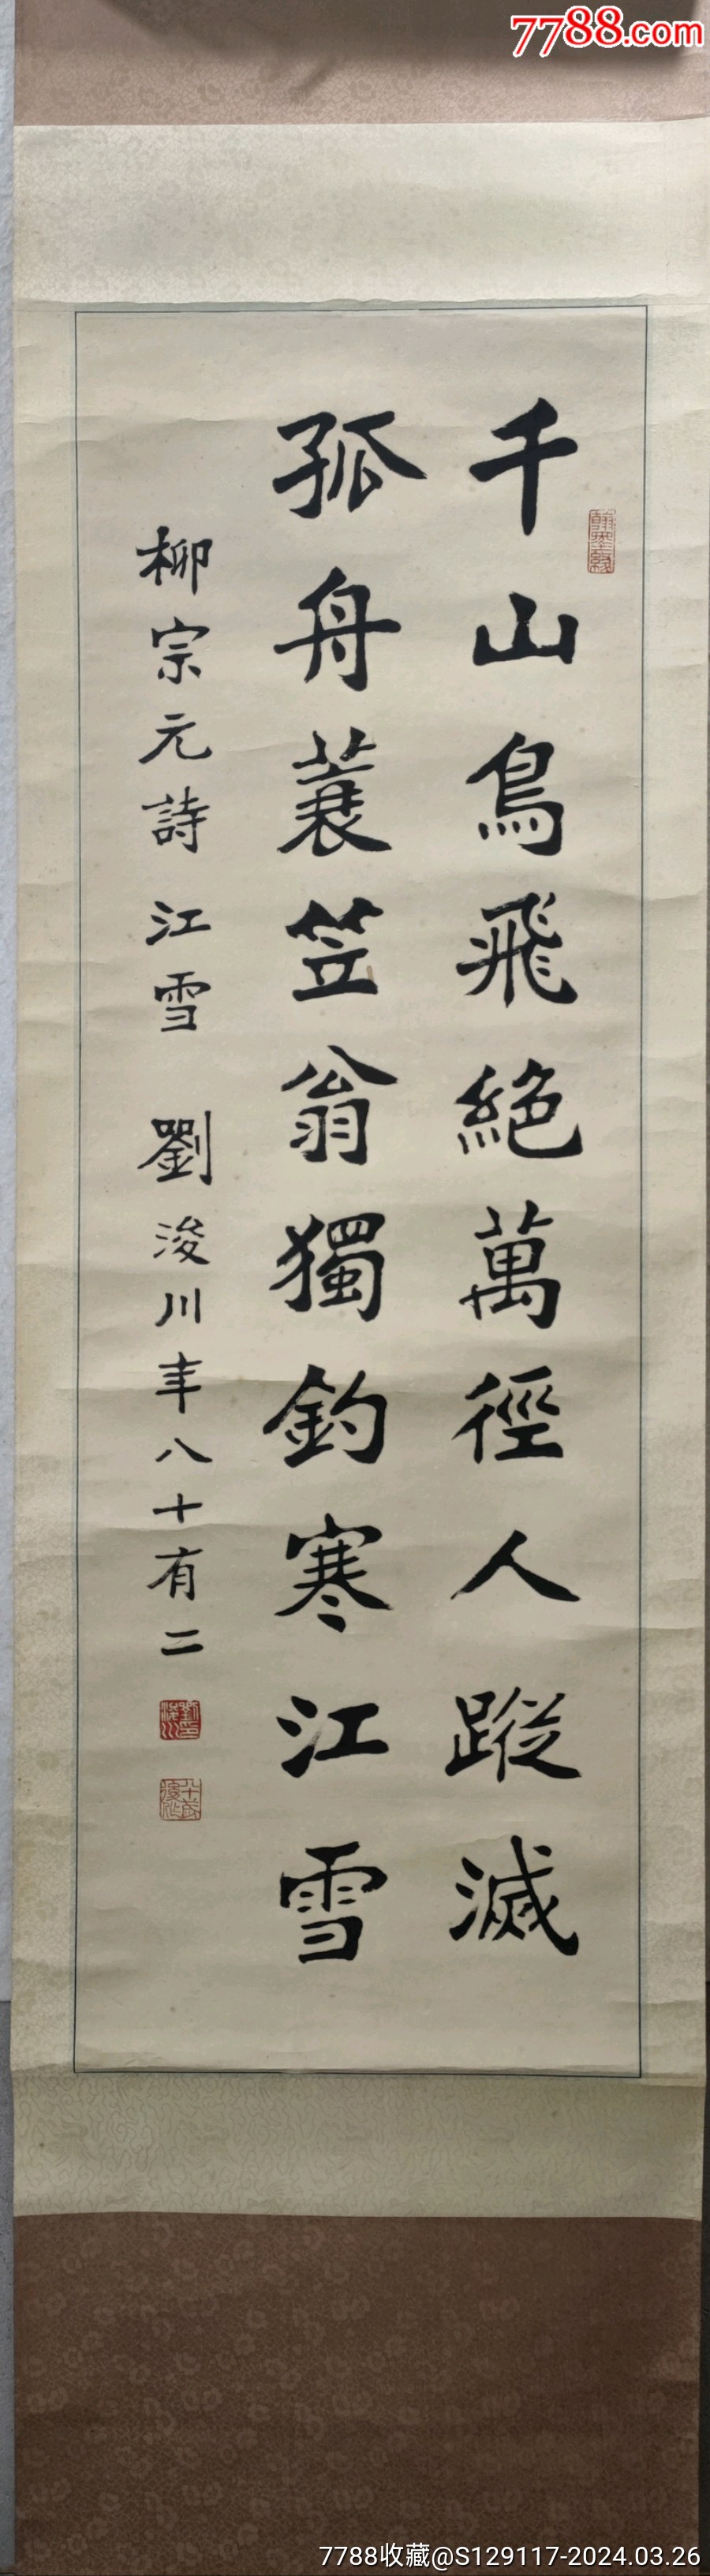 7788.com
千山鳥飛絕萬徑人蹤滅
孤舟蓑笠翁獨釣寒江雪
柳宗元詩 江雪 劉浚川年八十有二
翰墨緣
7788收藏@S129117-2024.03.26